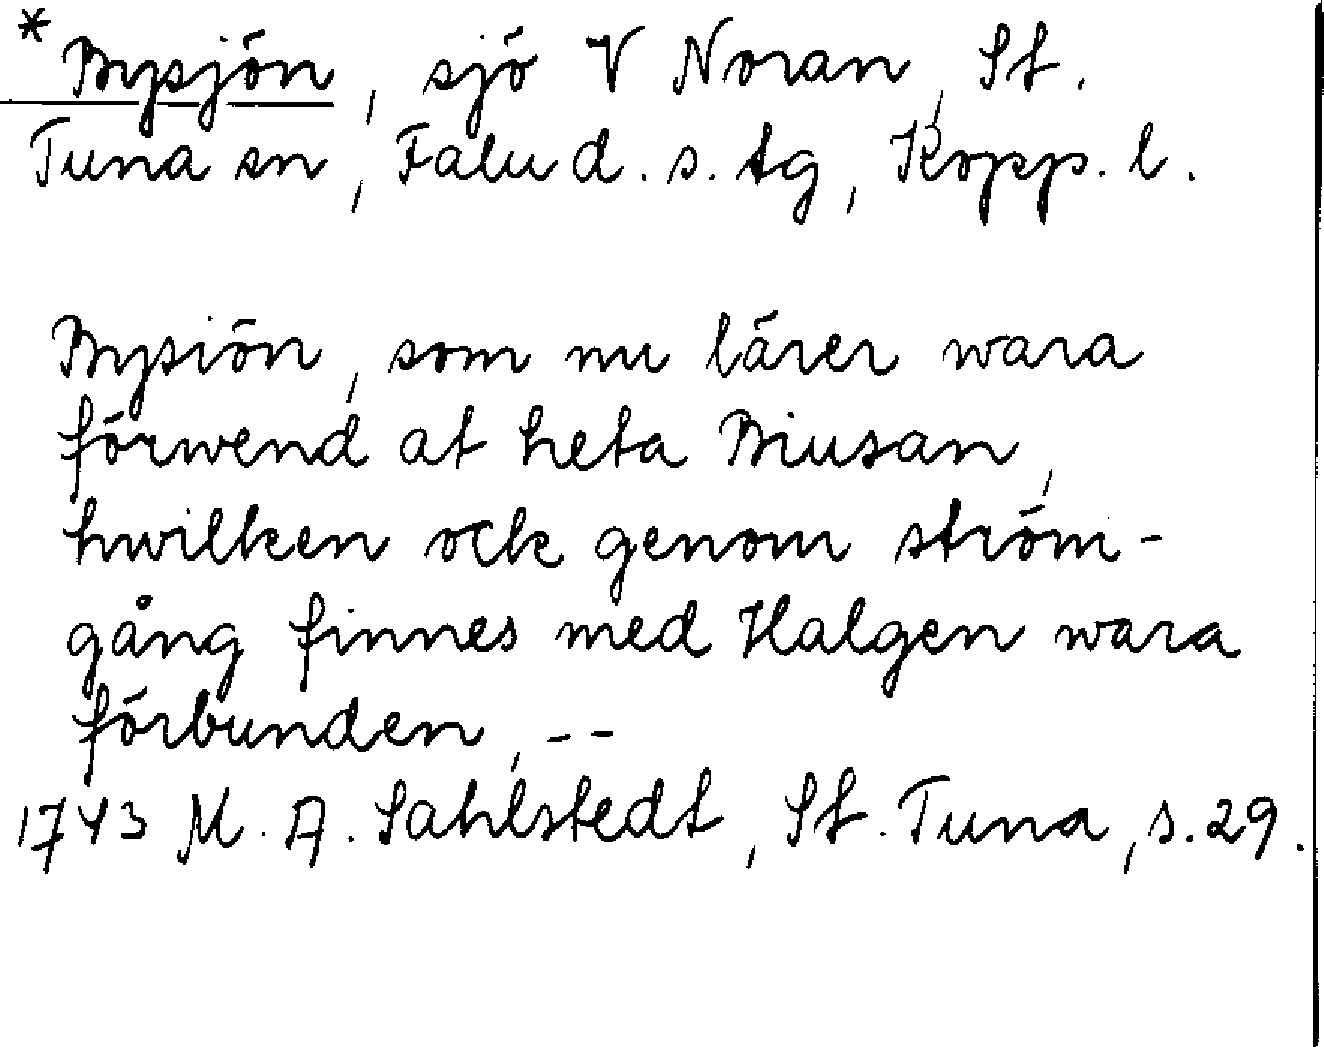 * Bysjön, sjö V Noran, St.
Tuna sn, Falu d. s. tg, Kopp. l.
Bysiön, som nu lärer wara
förwend at heta Biusan,
hwilken ock genom ström-
gång finnes med Halgen wara
förbunden, --
1743 M. A. Sahlstedt, St. Tuna, s. 29.